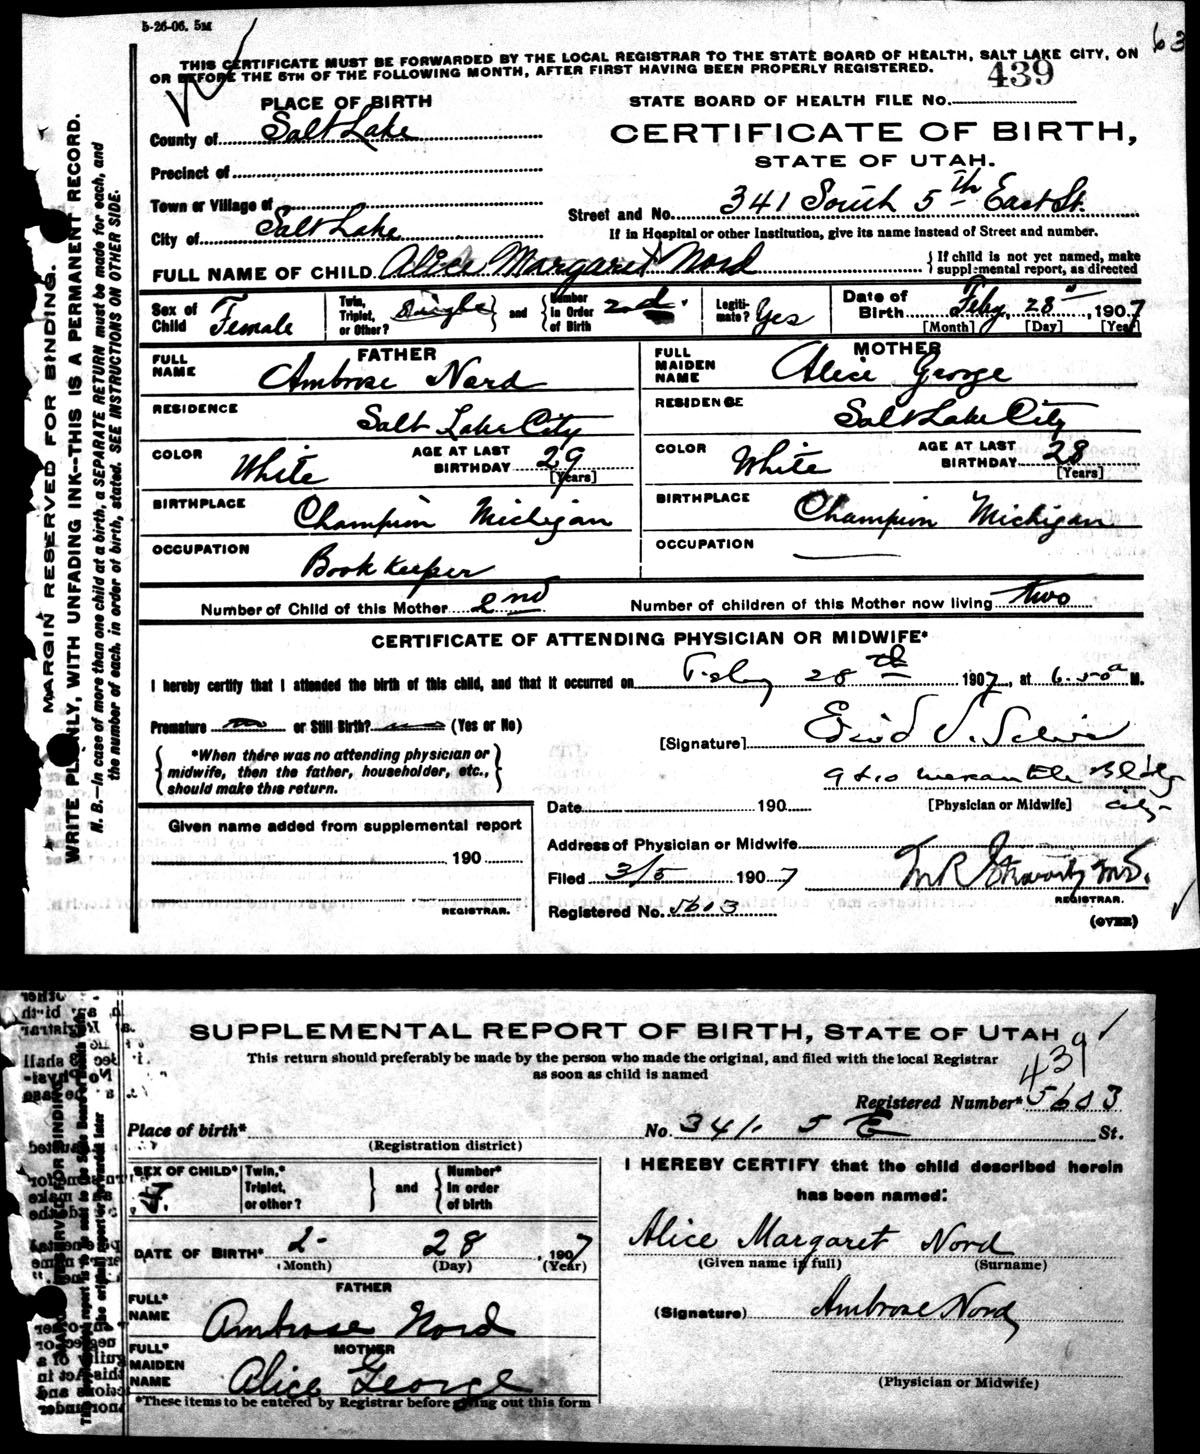 5-26-06. 5M
63
THIS CERTIFICATE MUST BE FORWARDED BY THE LOCAL REGISTRAR TO THE STATE BOARD OF HEALTH, SALT LAKE CITY, ON
OR BEFORE THE 5TH OF THE FOLLOWING MONTH, AFTER FIRST HAVING BEEN PROPERLY REGISTERED.
439
PLACE OF BIRTH
STATE BOARD OF HEALTH FILE No.
County of Salt Lake
CERTIFICATE OF BIRTH,
STATE OF UTAH.
Precinct of
Town or Village of
Street and No. 341 South 5th East St.
City of Salt Lake
If in Hospital or other Institution, give its name instead of Street and number.
FULL NAME OF CHILD Alice Margaret Nord
If child is not yet named, make
supplemental report, as directed
Sex of Child Female
Twin, Triplet, or Other? Single and Number in Order of Birth 2nd
Legiti-mate? Yes
Date of Birth Feby 28", 1907
[Month] [Day] [Year]
FATHER
FULL NAME Ambrose Nord
MOTHER
FULL MAIDEN NAME Alice George
RESIDENCE Salt Lake City
RESIDENCE Salt Lake City
COLOR White AGE AT LAST BIRTHDAY 29 [Years]
COLOR White AGE AT LAST BIRTHDAY 28 [Years]
BIRTHPLACE Champion Michigan
BIRTHPLACE Champion Michigan
OCCUPATION Book keeper
OCCUPATION
Number of Child of this Mother 2nd
Number of children of this Mother now living two
CERTIFICATE OF ATTENDING PHYSICIAN OR MIDWIFE*
I hereby certify that I attended the birth of this child, and that it occurred on Feby 28th 1907, at 6.50 a M.
Premature no or Still Birth? (Yes or No)
[Signature]
*When there was no attending physician or
midwife, then the father, householder, etc.,
should make this return.
Mercantile Bldg
city
Date 190
[Physician or Midwife]
Given name added from supplemental report
190
REGISTRAR.
Address of Physician or Midwife
Filed 3/5 1907
M.D.
REGISTRAR.
Registered No. 5603
(OVER)
MARGIN RESERVED FOR BINDING.
WRITE PLAINLY, WITH UNFADING INK--THIS IS A PERMANENT RECORD.
N. B.--In case of more than one child at a birth, a SEPARATE RETURN must be made for each, and
the number of each, in order of birth, stated. SEE INSTRUCTIONS ON OTHER SIDE.
SUPPLEMENTAL REPORT OF BIRTH, STATE OF UTAH
This return should preferably be made by the person who made the original, and filed with the local Registrar
as soon as child is named
439
Registered Number* 5603
Place of birth* No. 341. 5 E St.
(Registration district)
SEX OF CHILD* F.
Twin,* Triplet, or other? and Number* in order of birth
I HEREBY CERTIFY that the child described herein
has been named:
DATE OF BIRTH* 2- 28, 1907
(Month) (Day) (Year)
Alice Margaret Nord
(Given name in full) (Surname)
FATHER
FULL* NAME Ambrose Nord
(Signature) Ambrose Nord
MOTHER
FULL* MAIDEN NAME Alice George
(Physician or Midwife)
*These items to be entered by Registrar before giving out this form